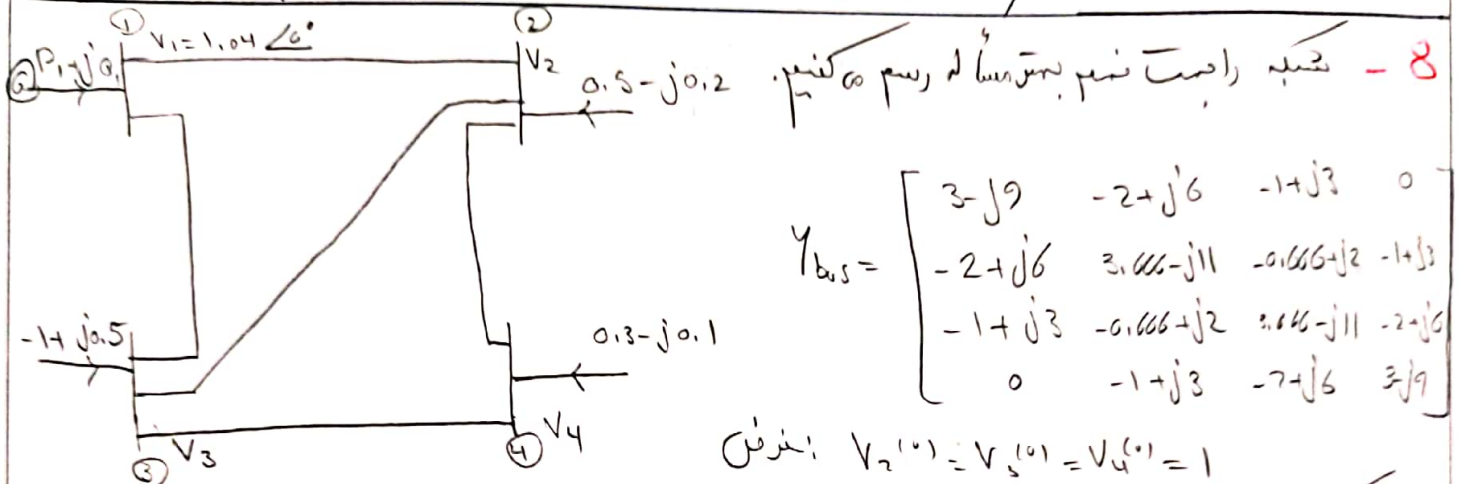 8 - شبکه را جهت فهم بهتر مسأله رسم می کنیم.
① V₁ = 1.04 ∠0°
②
V₂
0.5 - j0.2
-1 + j0.5
③ V₃
0.3 - j0.1
④ V₄
Ybus =
3-j9 -2+j6 -1+j3 0
-2+j6 3.666-j11 -0.666+j2 -1+j3
-1+j3 -0.666+j2 3.666-j11 -2+j6
0 -1+j3 -2+j6 3-j9
فرض: V₂⁽⁰⁾ = V₃⁽⁰⁾ = V₄⁽⁰⁾ = 1